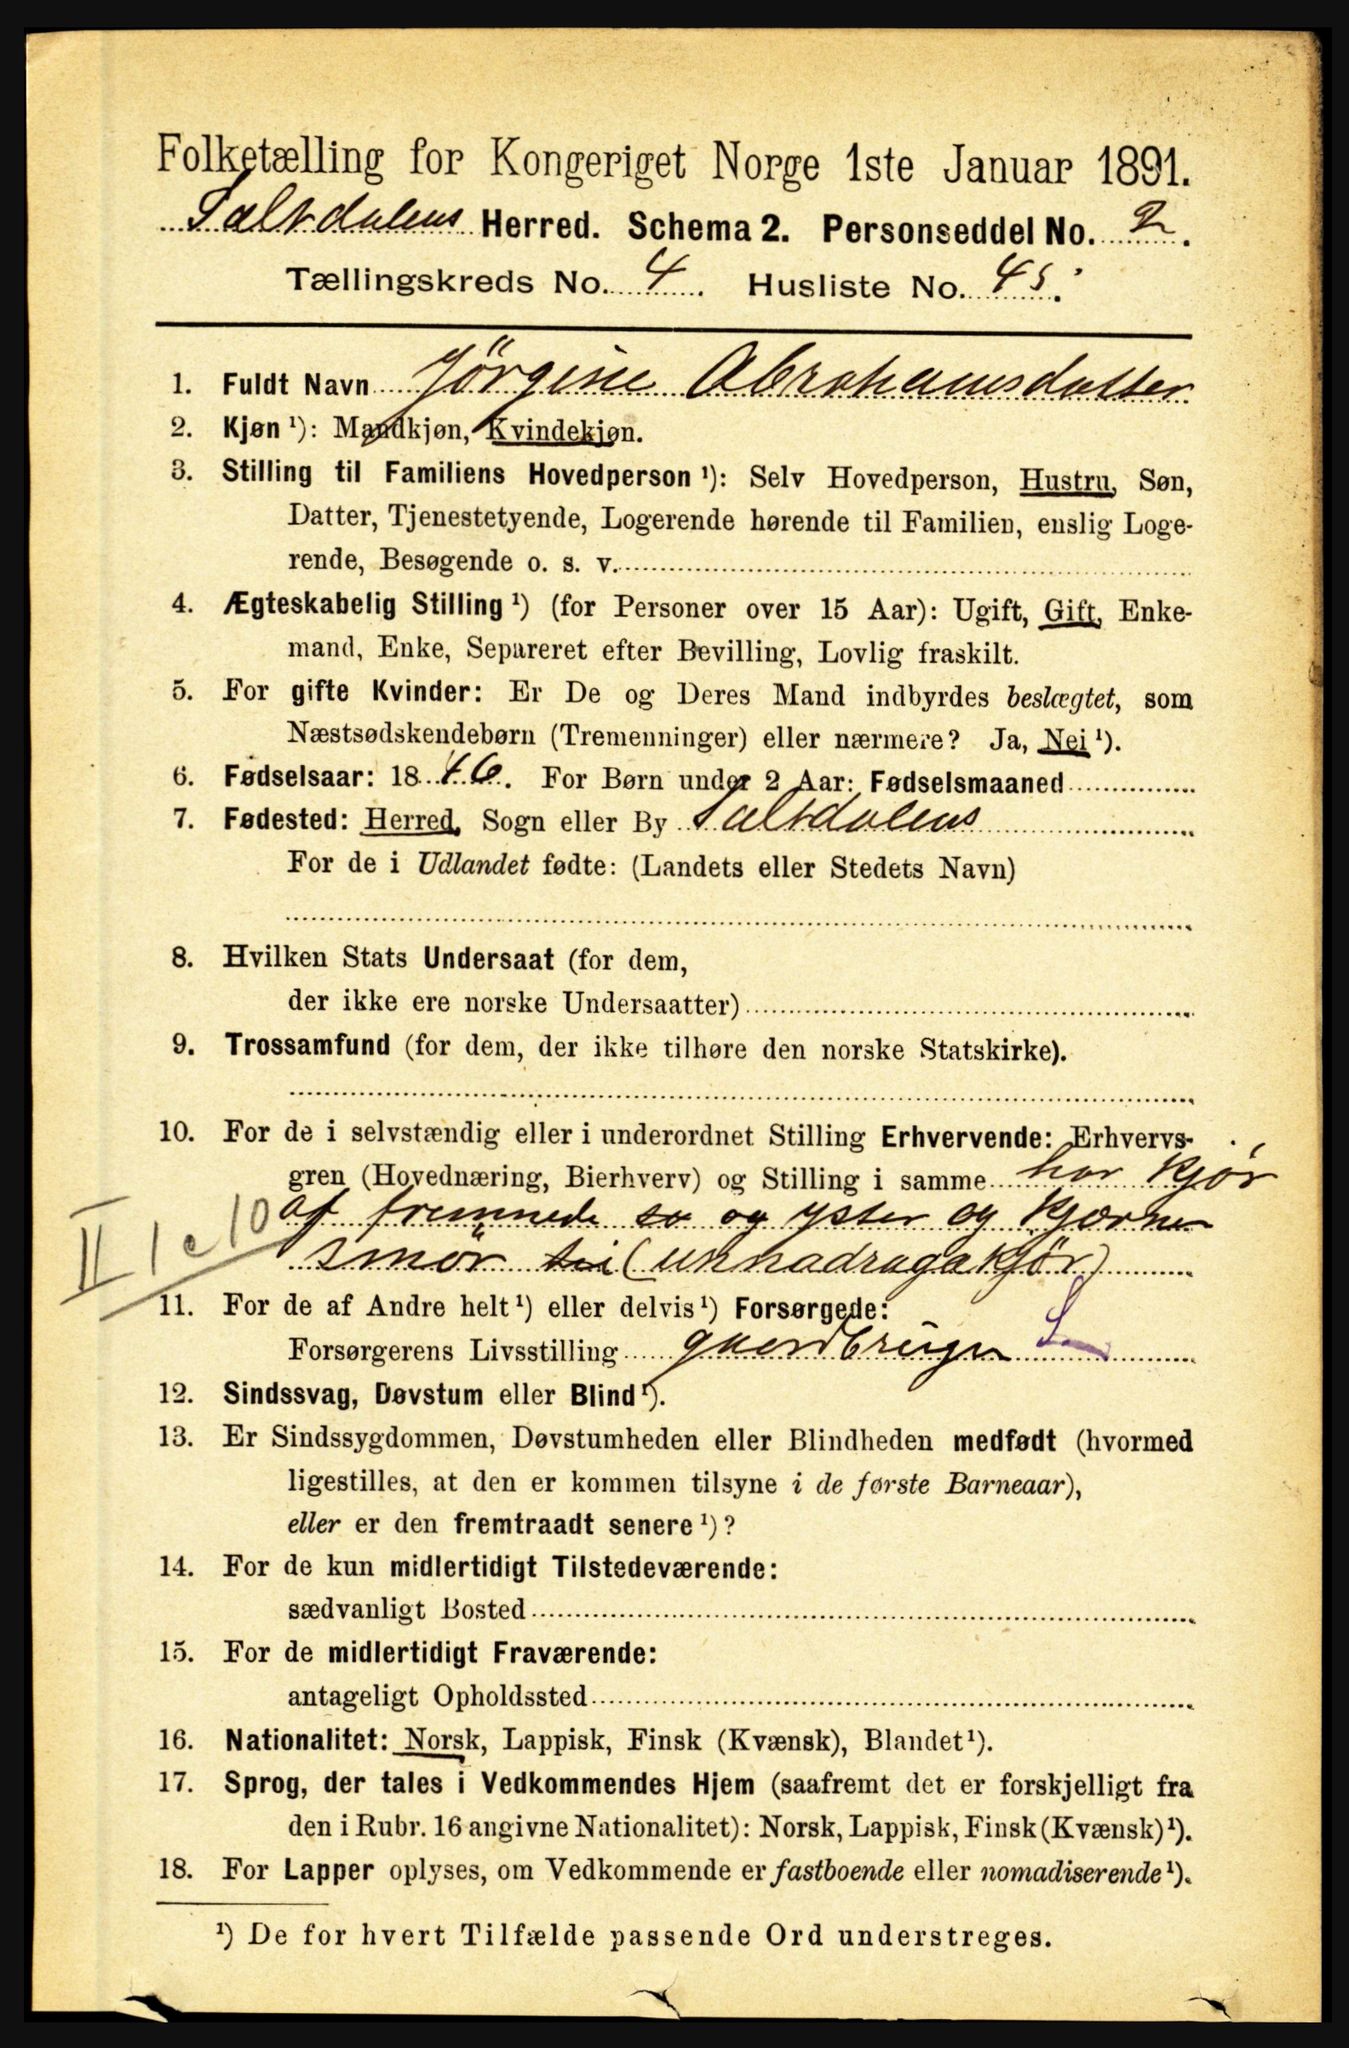 Folketælling for Kongeriget Norge 1ste Januar 1891.
Saltdalens Herred. Schema 2. Personseddel No. 2.
Tællingskreds No. 4. Husliste No. 45.
1. Fuldt Navn Jörgine Abrahamsdatter
2. Kjøn ¹): Mandkjøn, Kvindekjøn.
3. Stilling til Familiens Hovedperson ¹): Selv Hovedperson, Hustru, Søn,
Datter, Tjenestetyende, Logerende hørende til Familien, enslig Loge-
rende, Besøgende o. s. v.
4. Ægteskabelig Stilling ¹) (for Personer over 15 Aar): Ugift, Gift, Enke-
mand, Enke, Separeret efter Bevilling, Lovlig fraskilt.
5. For gifte Kvinder: Er De og Deres Mand indbyrdes beslægtet, som
Næstsødskendebørn (Tremenninger) eller nærmere? Ja, Nei ¹).
6. Fødselsaar: 1846. For Børn under 2 Aar: Fødselsmaaned
7. Fødested: Herred, Sogn eller By Saltdalens
For de i Udlandet fødte: (Landets eller Stedets Navn)
8. Hvilken Stats Undersaat (for dem,
der ikke ere norske Undersaatter)
9. Trossamfund (for dem, der ikke tilhøre den norske Statskirke).
10. For de i selvstændig eller i underordnet Stilling Erhvervende: Erhvervs-
gren (Hovednæring, Bierhverv) og Stilling i samme har kjør
af fremmede so og yster og kjærner
II 1 e 10
smør til (unnadragakjør)
11. For de af Andre helt ¹) eller delvis ¹) Forsørgede:
Forsørgerens Livsstilling gaardbruger S
12. Sindssvag, Døvstum eller Blind ¹).
13. Er Sindssygdommen, Døvstumheden eller Blindheden medfødt (hvormed
ligestilles, at den er kommen tilsyne i de første Barneaar),
eller er den fremtraadt senere ¹)?
14. For de kun midlertidigt Tilstedeværende:
sædvanligt Bosted
15. For de midlertidigt Fraværende:
antageligt Opholdssted
16. Nationalitet: Norsk, Lappisk, Finsk (Kvænsk), Blandet ¹).
17. Sprog, der tales i Vedkommendes Hjem (saafremt det er forskjelligt fra
den i Rubr. 16 angivne Nationalitet): Norsk, Lappisk, Finsk (Kvænsk) ¹).
18. For Lapper oplyses, om Vedkommende er fastboende eller nomadiserende ¹).
¹) De for hvert Tilfælde passende Ord understreges.